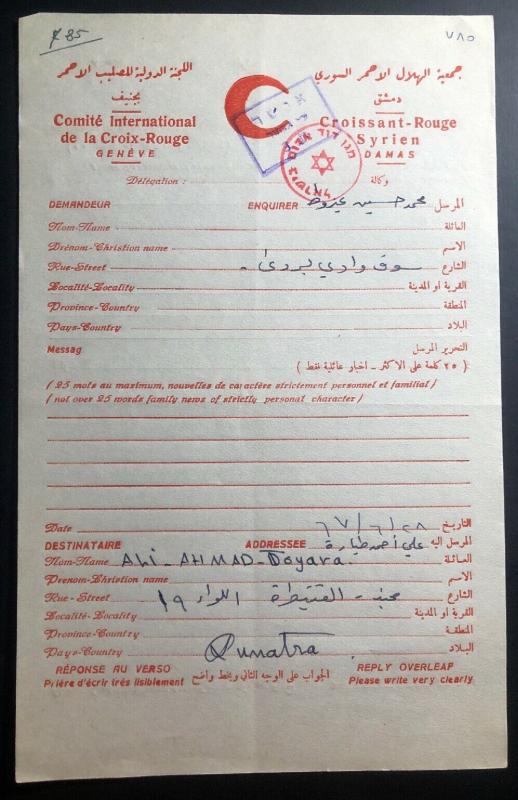 ₹ 85
٧٨٥
اللجنة الدولية للصليب الاحمر
بجنيف
Comité International
de la Croix-Rouge
GENÈVE
جمعية الهلال الاحمر السوري
دمشق
Croissant-Rouge
Syrien
DAMAS
מגן דוד אדום
Délégation : وكالة
DEMANDEUR ENQUIRER محمد حسين المرسل
Nom-Name العائلة
Prénom-Christion name الاسم
Rue-Street سوق وادي بردى . الشارع
Localité-Locality القرية او المدينة
Province-Country المنطقة
Pays-Country البلاد
Messag التحرير المرسل
( ٢٥ كلمة على الاكثر - اخبار عائلية فقط )
( 25 mots au maximum, nouvelles de caractère strictement personnel et familial )
( not over 25 words family news of strictly personal character )
Date ٦٧/٦/٢٨ التاريخ
DESTINATAIRE ADDRESSEE علي أحمد طيارة المرسل اليه
Nom-Name Ali - AHMAD - Doyara العائلة
Prenom-Christian name الاسم
Rue-Street القنيطرة اللواء ١٩ الشارع
Localité-Locality القرية او المدينة
Province-Country المنطقة
Pays-Country Qunatra البلاد
RÉPONSE AU VERSO الجواب على الوجه الثاني وبخط واضح REPLY OVERLEAF
Prière d'écrir très lisiblement Please write very clearly